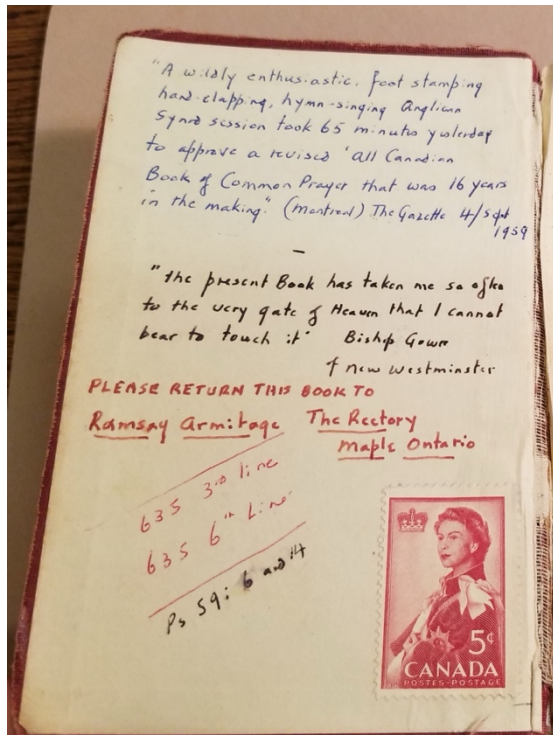 "A wildly enthusiastic, foot stamping
hand-clapping, hymn-singing Anglican
Synod session took 65 minutes yesterday
to approve a revised 'all Canadian
Book of Common Prayer that was 16 years
in the making." (Montreal) The Gazette 4/Sept
1959
–
"the present Book has taken me so often
to the very gate of Heaven that I cannot
bear to touch it" Bishop Gower
of New Westminster
PLEASE RETURN THIS BOOK TO
Ramsay Armitage The Rectory
Maple Ontario
635 3rd line
635 6th Line
Ps 59: 6 and 14
5¢
CANADA
POSTES-POSTAGE